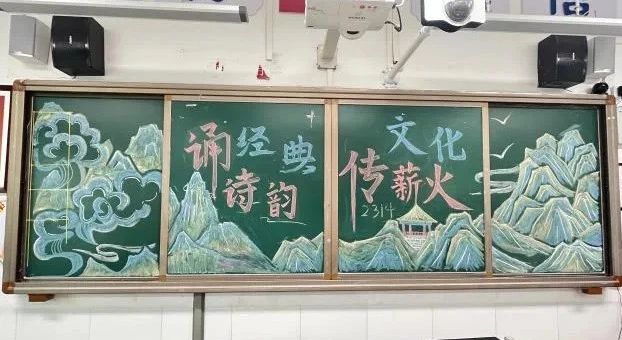 诵经典
诗韵
文化
传薪火
2314